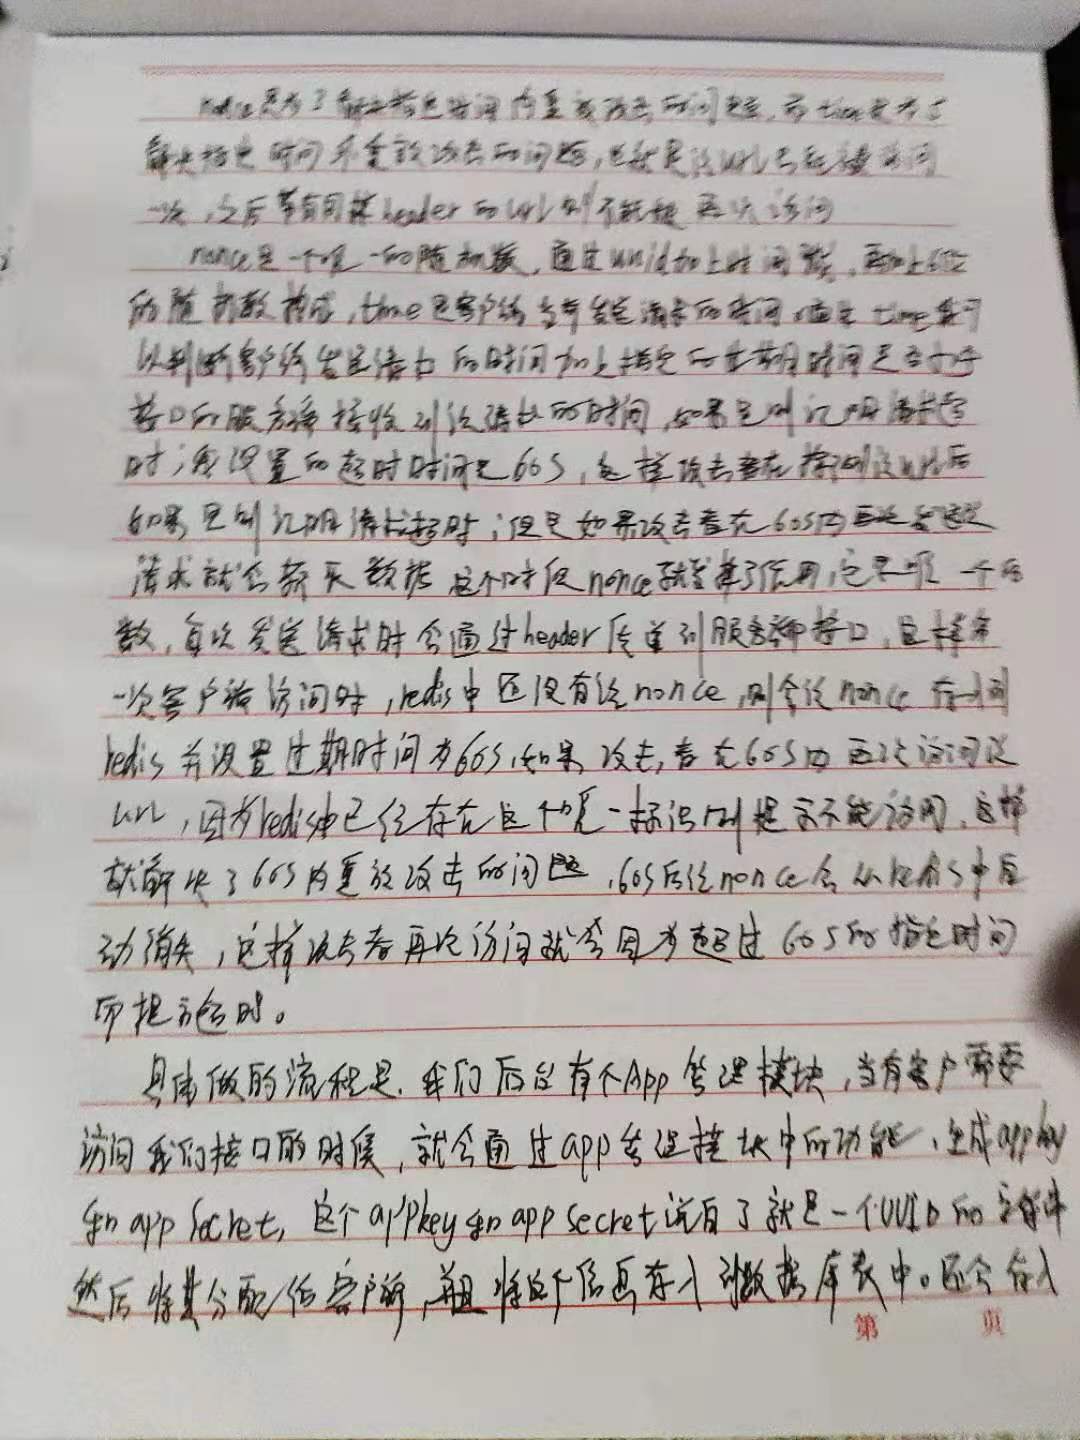 nonce是为了解决指定时间内重放攻击的问题，而time是为了
解决指定时间外重放攻击的问题，也就是该url只能被访问
一次，之后带有同样header的url则不能够再次访问
nonce是一个唯一的随机数，通过uuid加上时间戳，再加上6位
的随机数构成，time是客户端当前发送请求的时间，time可
以判断客户端发送请求的时间加上指定的过期时间是否小于
接口的服务器接收到该请求的时间，如果是则证明请求超
时，我设置的超时时间是60S，这样攻击者在拦截到该url后
如果是则证明请求超时，但是如果攻击者在60S内再次发送
请求就会获取数据 这个时候nonce就发挥了作用，它是唯一个的
数，每次发送请求时会通过header传递到服务端接口，这样第
一次客户端访问时，redis中还没有该nonce，则会该nonce存入到
redis并设置过期时间为60S，如果攻击者在60S内再次访问该
url，因为redis中已经存在这个唯一标识则提示不能访问，这样
就解决了60S内重放攻击的问题，60S后该nonce会从redis中自
动消失，这样攻击者再次访问就会因为超过60S的指定时间
而提示超时。
具体做的流程是，我们后台有个App管理模块，当有客户需要
访问我们接口的时候，就会通过app管理模块中的功能，生成appkey
和app Secret，这个appkey和app secret说白了就是一个UUID的字符串
然后将其分配给客户端，并且将这个信息存入到数据库表中。还会存入
第 页